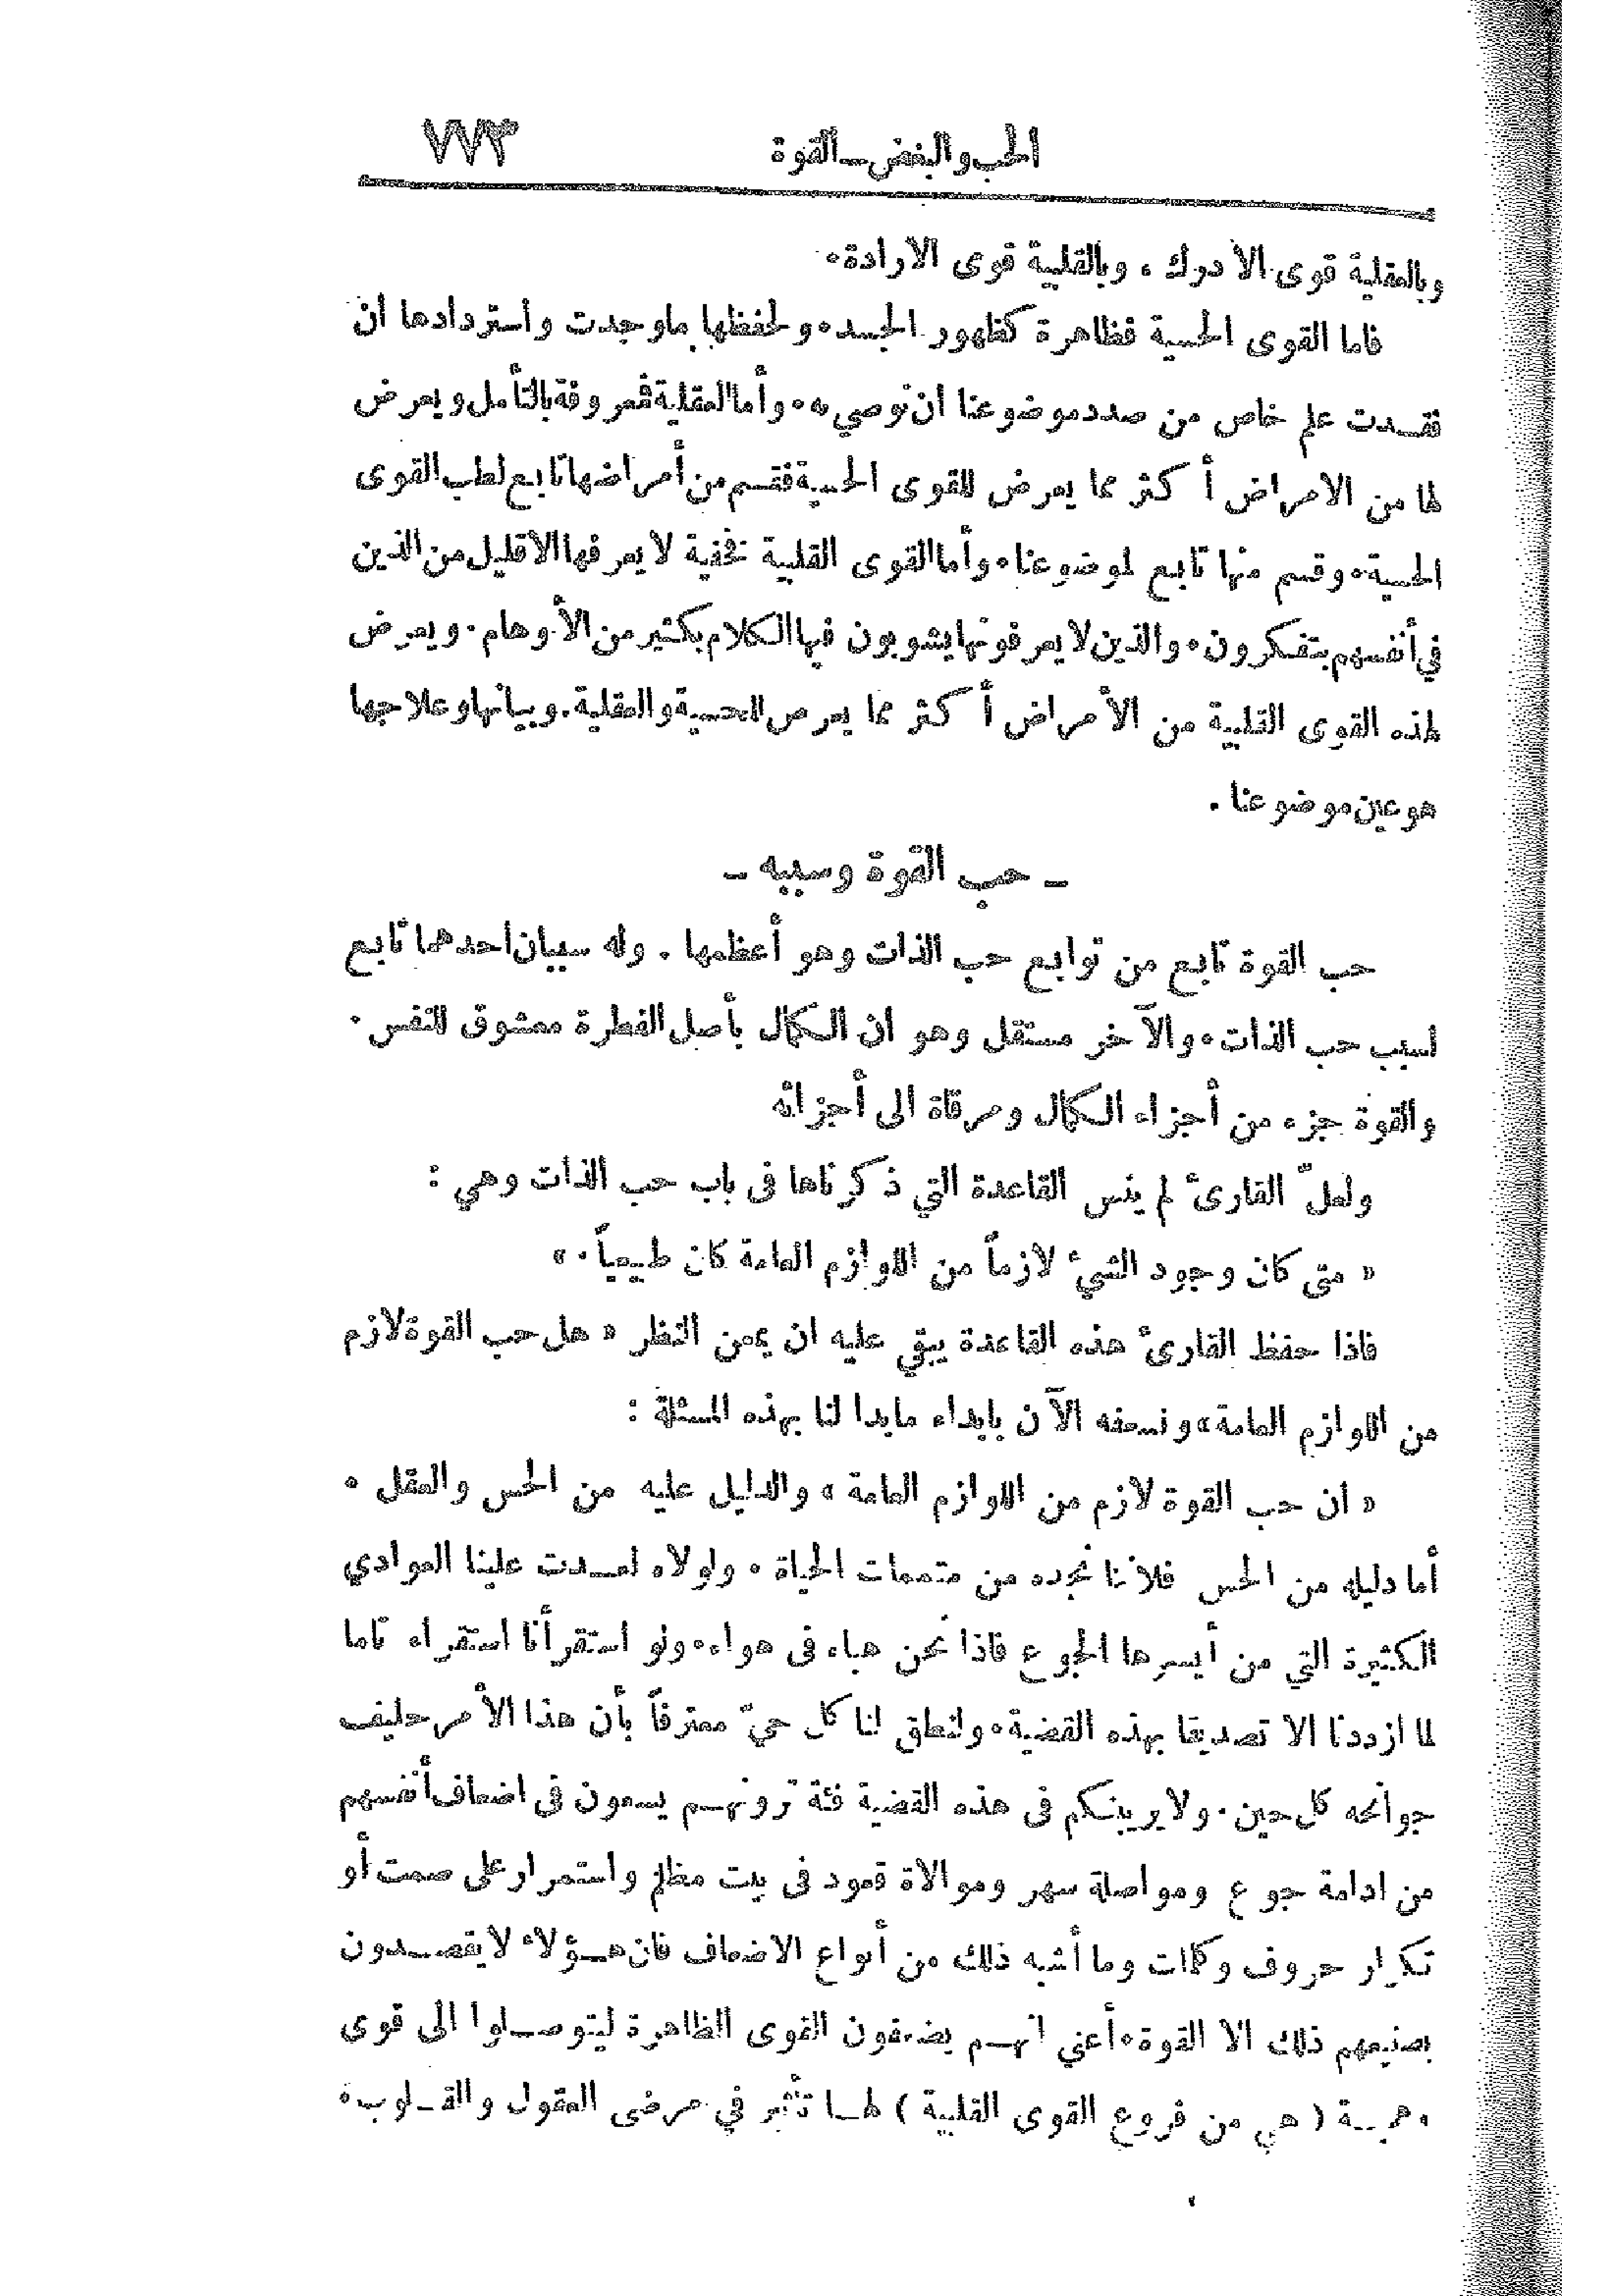 الحب والبغض ــ القوة ٧٧٣
وبالعقلية قوى الادرك ، وبالقلبية قوى الارادة .
فاما القوى الحسية فظاهرة كظهور الجسد . ولحفظها ما وجدت واستردادها ان
فقدت علم خاص من صدد موضوعنا ان نوصي به . وأما العقلية فمعروفة بالتأمل ويعرض
لها من الامراض أكثر مما يعرض للقوى الحسية فقسم من أمراضها تابع لطب القوى
الحسية . وقسم منها تابع لموضوعنا . وأما القوى القلبية فخفية لا يعرفها الا قليل من الذين
في أنفسهم يتفكرون . والذين لا يعرفونها يشوبون فيها الكلام بكثير من الأوهام . ويعرض
لهذه القوى القلبية من الأمراض أكثر مما يعرض للحسية والعقلية . وبيانها وعلاجها
هو عين موضوعنا .
ــ حب القوة وسببه ــ
حب القوة تابع من توابع حب الذات وهو أعظمها . وله سببان احدهما تابع
لسبب حب الذات . والآخر مستقل وهو ان الكمال بأصل الفطرة معشوق للنفس .
والقوة جزء من أجزاء الكمال ومرقاة الى أجزائه
ولعلّ القارئ لم ينس القاعدة التي ذكرناها فى باب حب الذات وهي :
« متى كان وجود الشيء لازماً من اللوازم العامة كان طبيعياً . »
فاذا حفظ القارئ هذه القاعدة يبقي عليه ان يمعن النظر « هل حب القوة لازم
من اللوازم العامة » ونسعفه الآن بابداء ما بدا لنا بهذه المسئلة :
« ان حب القوة لازم من اللوازم العامة » والدليل عليه من الحس والعقل .
أما دليله من الحس فلأننا نجده من متممات الحياة . ولولاه لعدت علينا العوادي
الكثيرة التي من أيسرها الجوع فاذا نحن هباء فى هواء . ولو استقرأنا استقراء تاما
لما ازددنا الا تصديقا بهذه القضية . ولنطق لنا كل حيّ معترفاً بأن هذا الأمر حليف
جوانحه كل حين . ولا يريبنكم فى هذه القضية فئة ترونهم يسعون فى اضعاف أنفسهم
من ادامة جوع ومواصلة سهر وموالاة قعود فى بيت مظلم واستمرار على صمت أو
تكرار حروف وكلمات وما أشبه ذلك من أنواع الاضعاف فان هؤلاء لا يقصدون
بصنيعهم ذلك الا القوة . أعني انهم يضعفون القوى الظاهرة ليتوصلوا الى قوى
( هي من فروع القوى القلبية ) لها تأثير في مرضى العقول والقلوب .